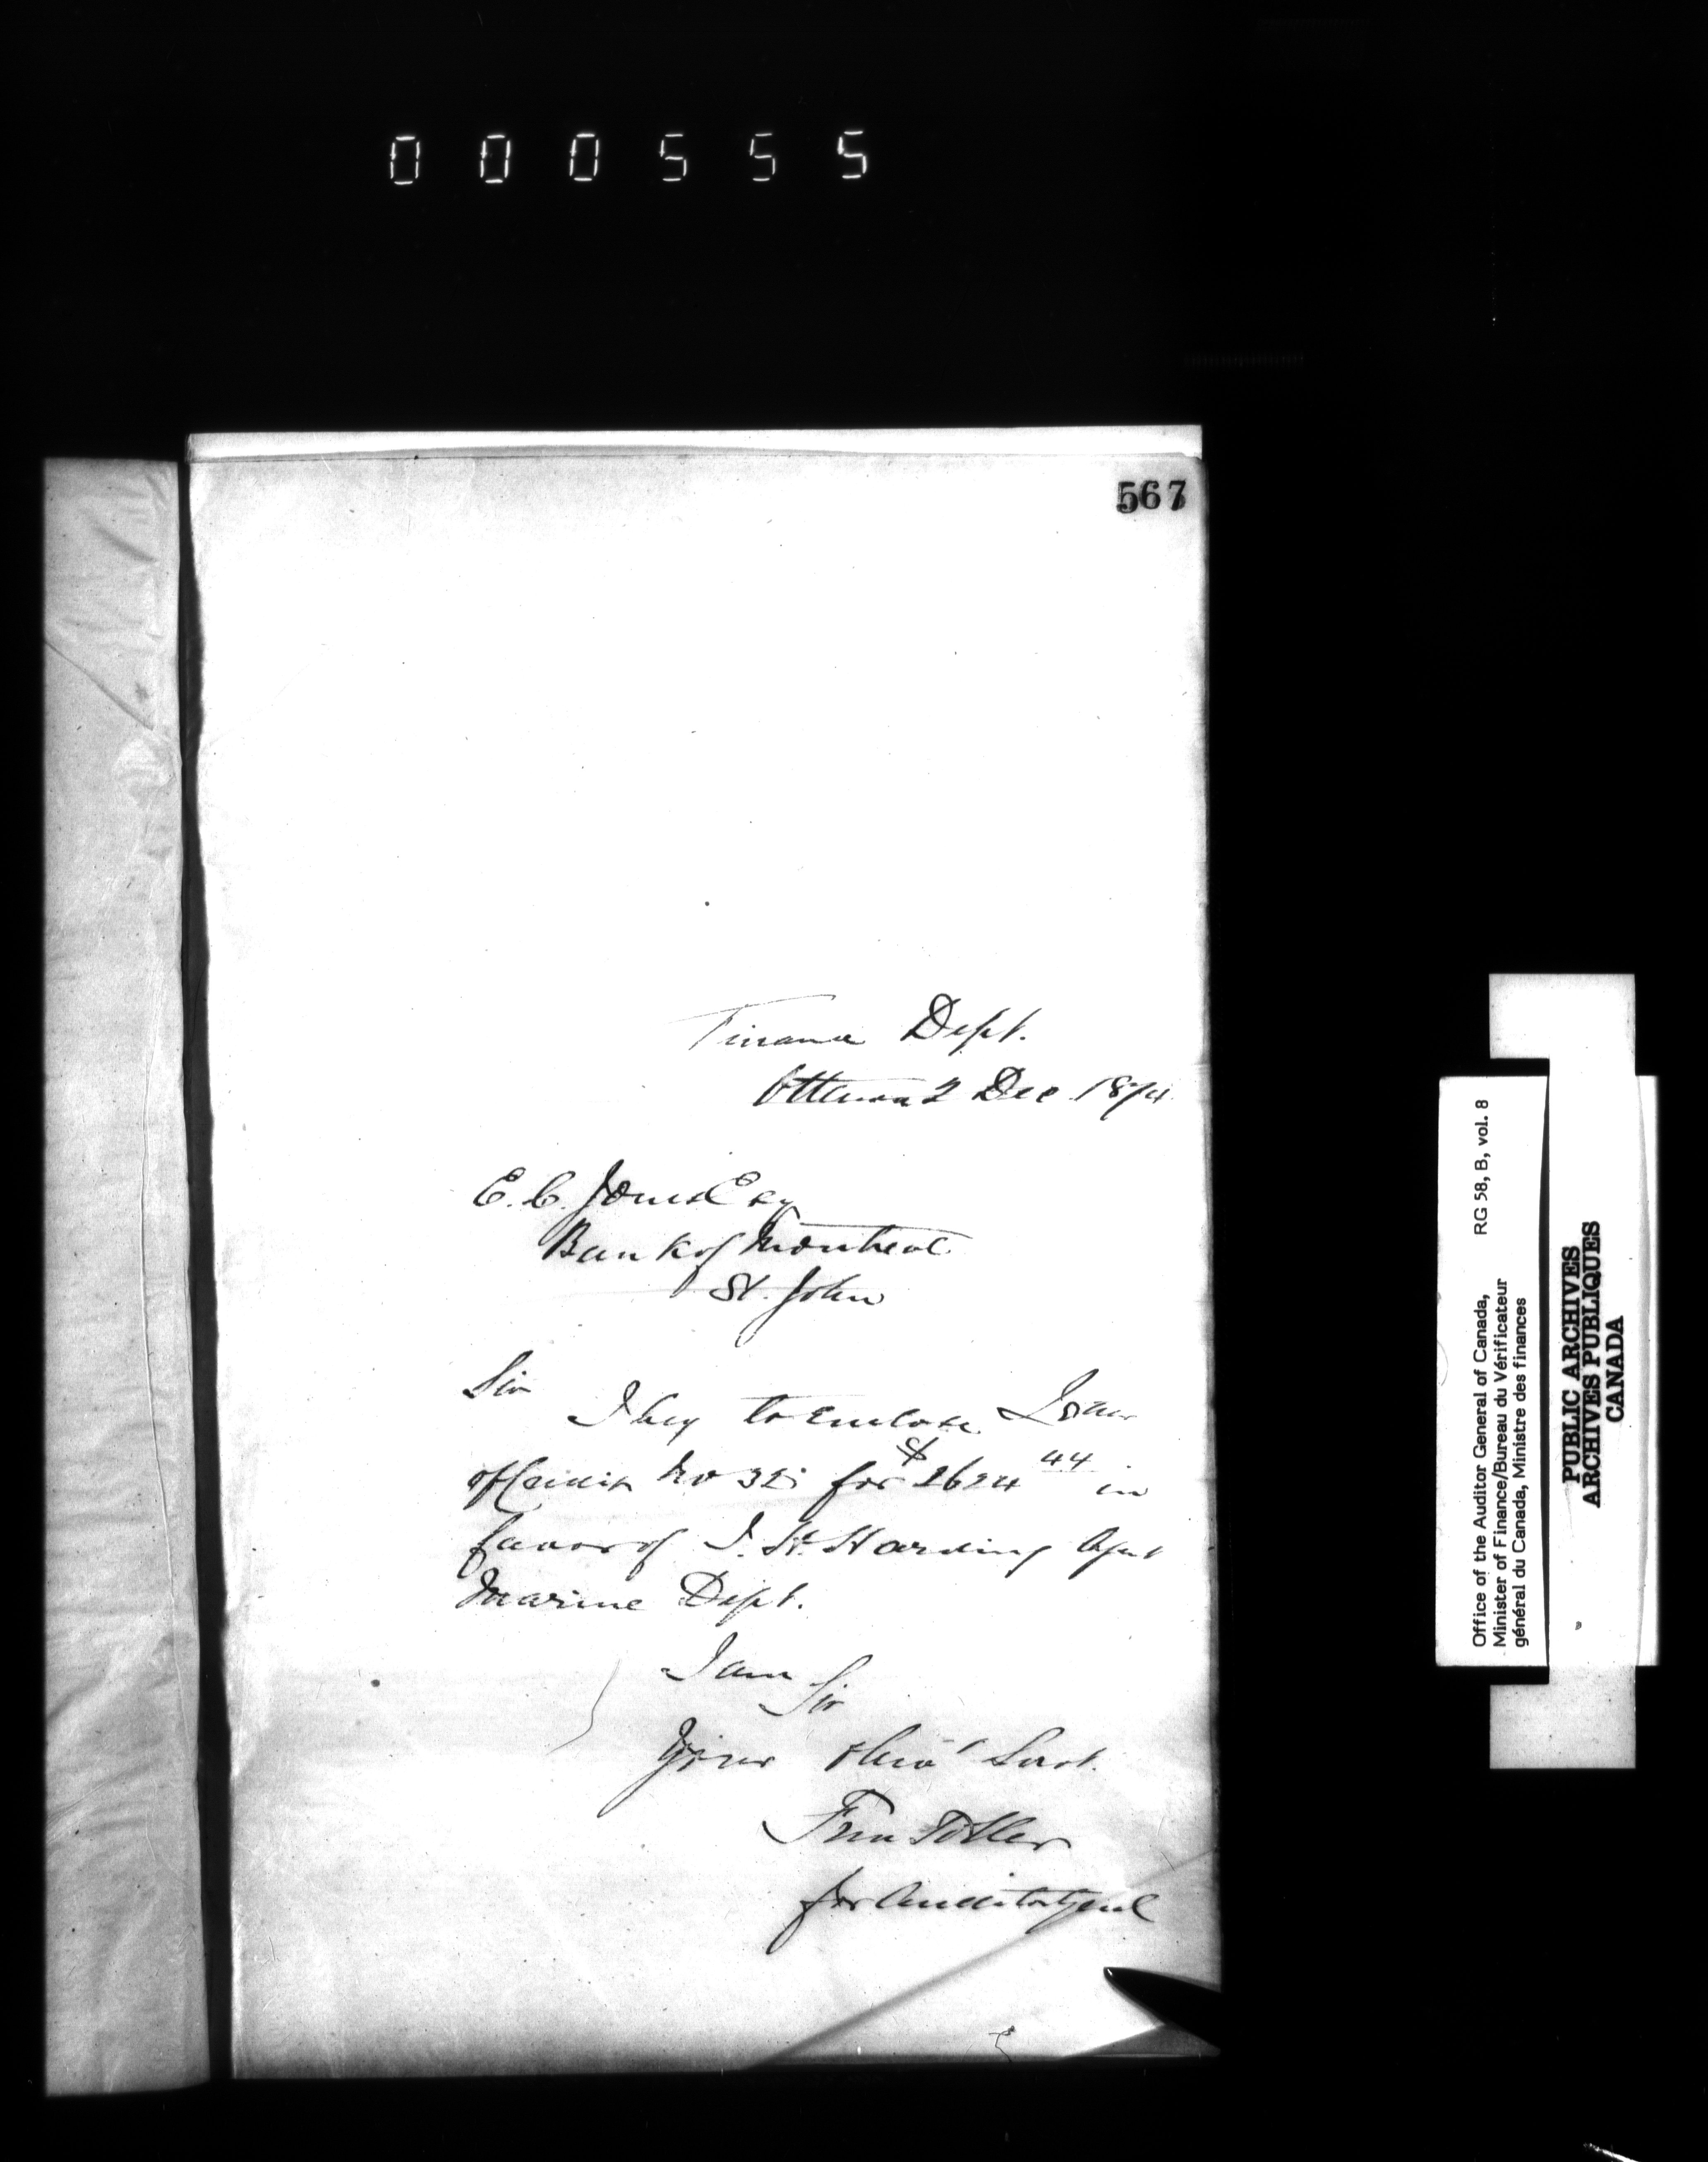 000555
567
Finance Dept.
Ottawa 2 Dec 1874
E. C. Jones Esq
Bank of Montreal
St. John
Sir
I beg to enclose Letter
of Credit No for $2624 44 in
favor of J. H. Harding Agent
Marine Dept.
I am
Sir
Your Obed Servt.
Fred Toller
for Auditor Genl
Office of the Auditor General of Canada, RG 58, B, vol. 8
Minister of Finance/Bureau du Vérificateur
général du Canada, Ministre des finances
PUBLIC ARCHIVES
ARCHIVES PUBLIQUES
CANADA